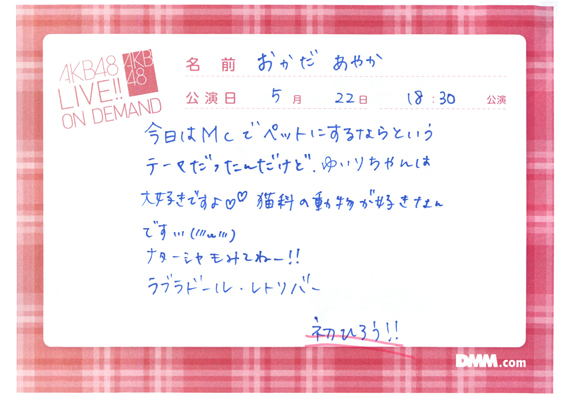 AKB48
LIVE!!
ON DEMAND
AKB
48
名 前 おかだ あやか
公演日 5 月 22 日 18 : 30 公演
今日はMCでペットにするならという
テーマだったんだけど、ゆいりちゃんは
大好きですよ♡♡ 猫科の動物が好きなん
です!!!(///ω///)
ナターシャもみてねー!!
ラブラドール・レトリバー
初ひろう!!
DMM.com